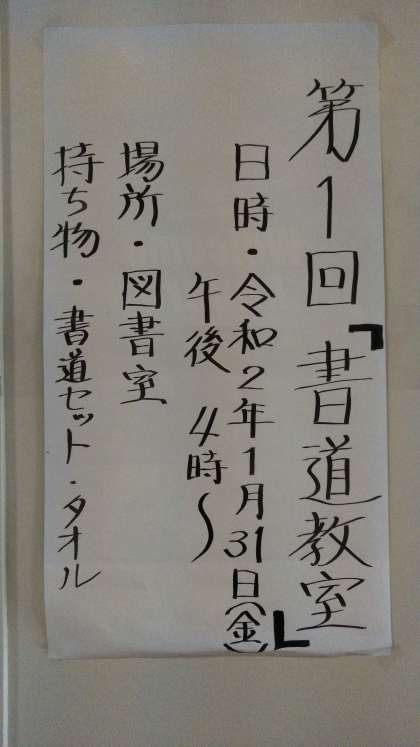 第1回「書道教室」
日時・令和2年1月31日(金)
午後 4時〜
場所・図書室
持ち物・書道セット・タオル